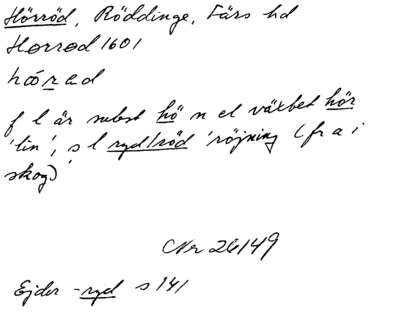 Hörröd, Röddinge, Färs hd
Horrod 1601
hǿrad
f l är subst hö n el växtbet hör
'lin', s l ryd/röd 'röjning (fr a i
skog)'
Nr 26149
Ejder -ryd s 141